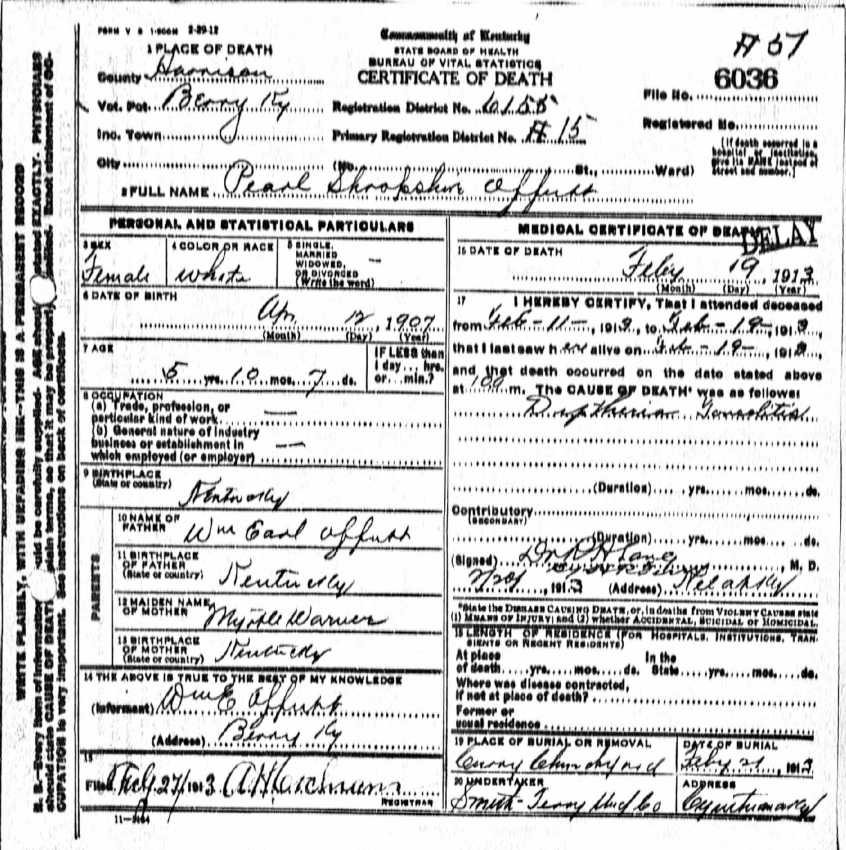 FORM V S 1-500M 2-29-12
Commonwealth of Kentucky
STATE BOARD OF HEALTH
BUREAU OF VITAL STATISTICS
CERTIFICATE OF DEATH
# 57
File No. 6036
Registered No.
[If death occurred in a hospital or institution, give its NAME instead of street and number.]
1 PLACE OF DEATH
County Harrison
Vot. Pct. Berry Ky
Registration District No. 6155
Inc. Town
Primary Registration District No. # 15
City (No. St., Ward)
2 FULL NAME Pearl Shropshire Offutt
PERSONAL AND STATISTICAL PARTICULARS
3 SEX Female
4 COLOR OR RACE White
5 SINGLE, MARRIED WIDOWED, OR DIVORCED (Write the word) —
6 DATE OF BIRTH
Apr 12, 1907
(Month) (Day) (Year)
7 AGE
5 yrs. 10 mos. 7 ds.
IF LESS than 1 day... hrs. or... min.?
8 OCCUPATION
(a) Trade, profession, or particular kind of work —
(b) General nature of industry business or establishment in which employed (or employer) —
9 BIRTHPLACE
(State or country) Kentucky
PARENTS
10 NAME OF FATHER Wm Earl Offutt
11 BIRTHPLACE OF FATHER (State or country) Kentucky
12 MAIDEN NAME OF MOTHER Myrtle Warner
13 BIRTHPLACE OF MOTHER (State or country) Kentucky
14 THE ABOVE IS TRUE TO THE BEST OF MY KNOWLEDGE
(Informant) Wm E Offutt
(Address) Berry Ky
15
Filed 27/1913
REGISTRAR
11-3184
MEDICAL CERTIFICATE OF DEATH
DELAY
16 DATE OF DEATH
Feby 19, 1913
(Month) (Day) (Year)
17 I HEREBY CERTIFY, That I attended deceased
from Feb-11-, 1913, to Feb-19-, 1913
that I last saw her alive on Feb-19-, 1913
and that death occurred on the date stated above
at m. The CAUSE OF DEATH* was as follows:
Diptheria Tonsolitis
(Duration) yrs. mos. ds.
Contributory
(SECONDARY)
(Duration) yrs. mos. ds.
(Signed) Dr , M. D.
, 1913 (Address)
*State the DISEASE CAUSING DEATH, or, in deaths from VIOLENT CAUSES state (1) MEANS OF INJURY; and (2) whether ACCIDENTAL, SUICIDAL or HOMICIDAL.
18 LENGTH OF RESIDENCE (FOR HOSPITALS, INSTITUTIONS, TRANSIENTS OR RECENT RESIDENTS)
At place of death yrs. mos. ds. In the State yrs. mos. ds.
Where was disease contracted, if not at place of death?
Former or usual residence
19 PLACE OF BURIAL OR REMOVAL
Curry Churchyard
DATE OF BURIAL
Feby 21, 1913
20 UNDERTAKER
Smith-Terry Und Co
ADDRESS
Cynthiana Ky
WRITE PLAINLY, WITH UNFADING INK--THIS IS A PERMANENT RECORD